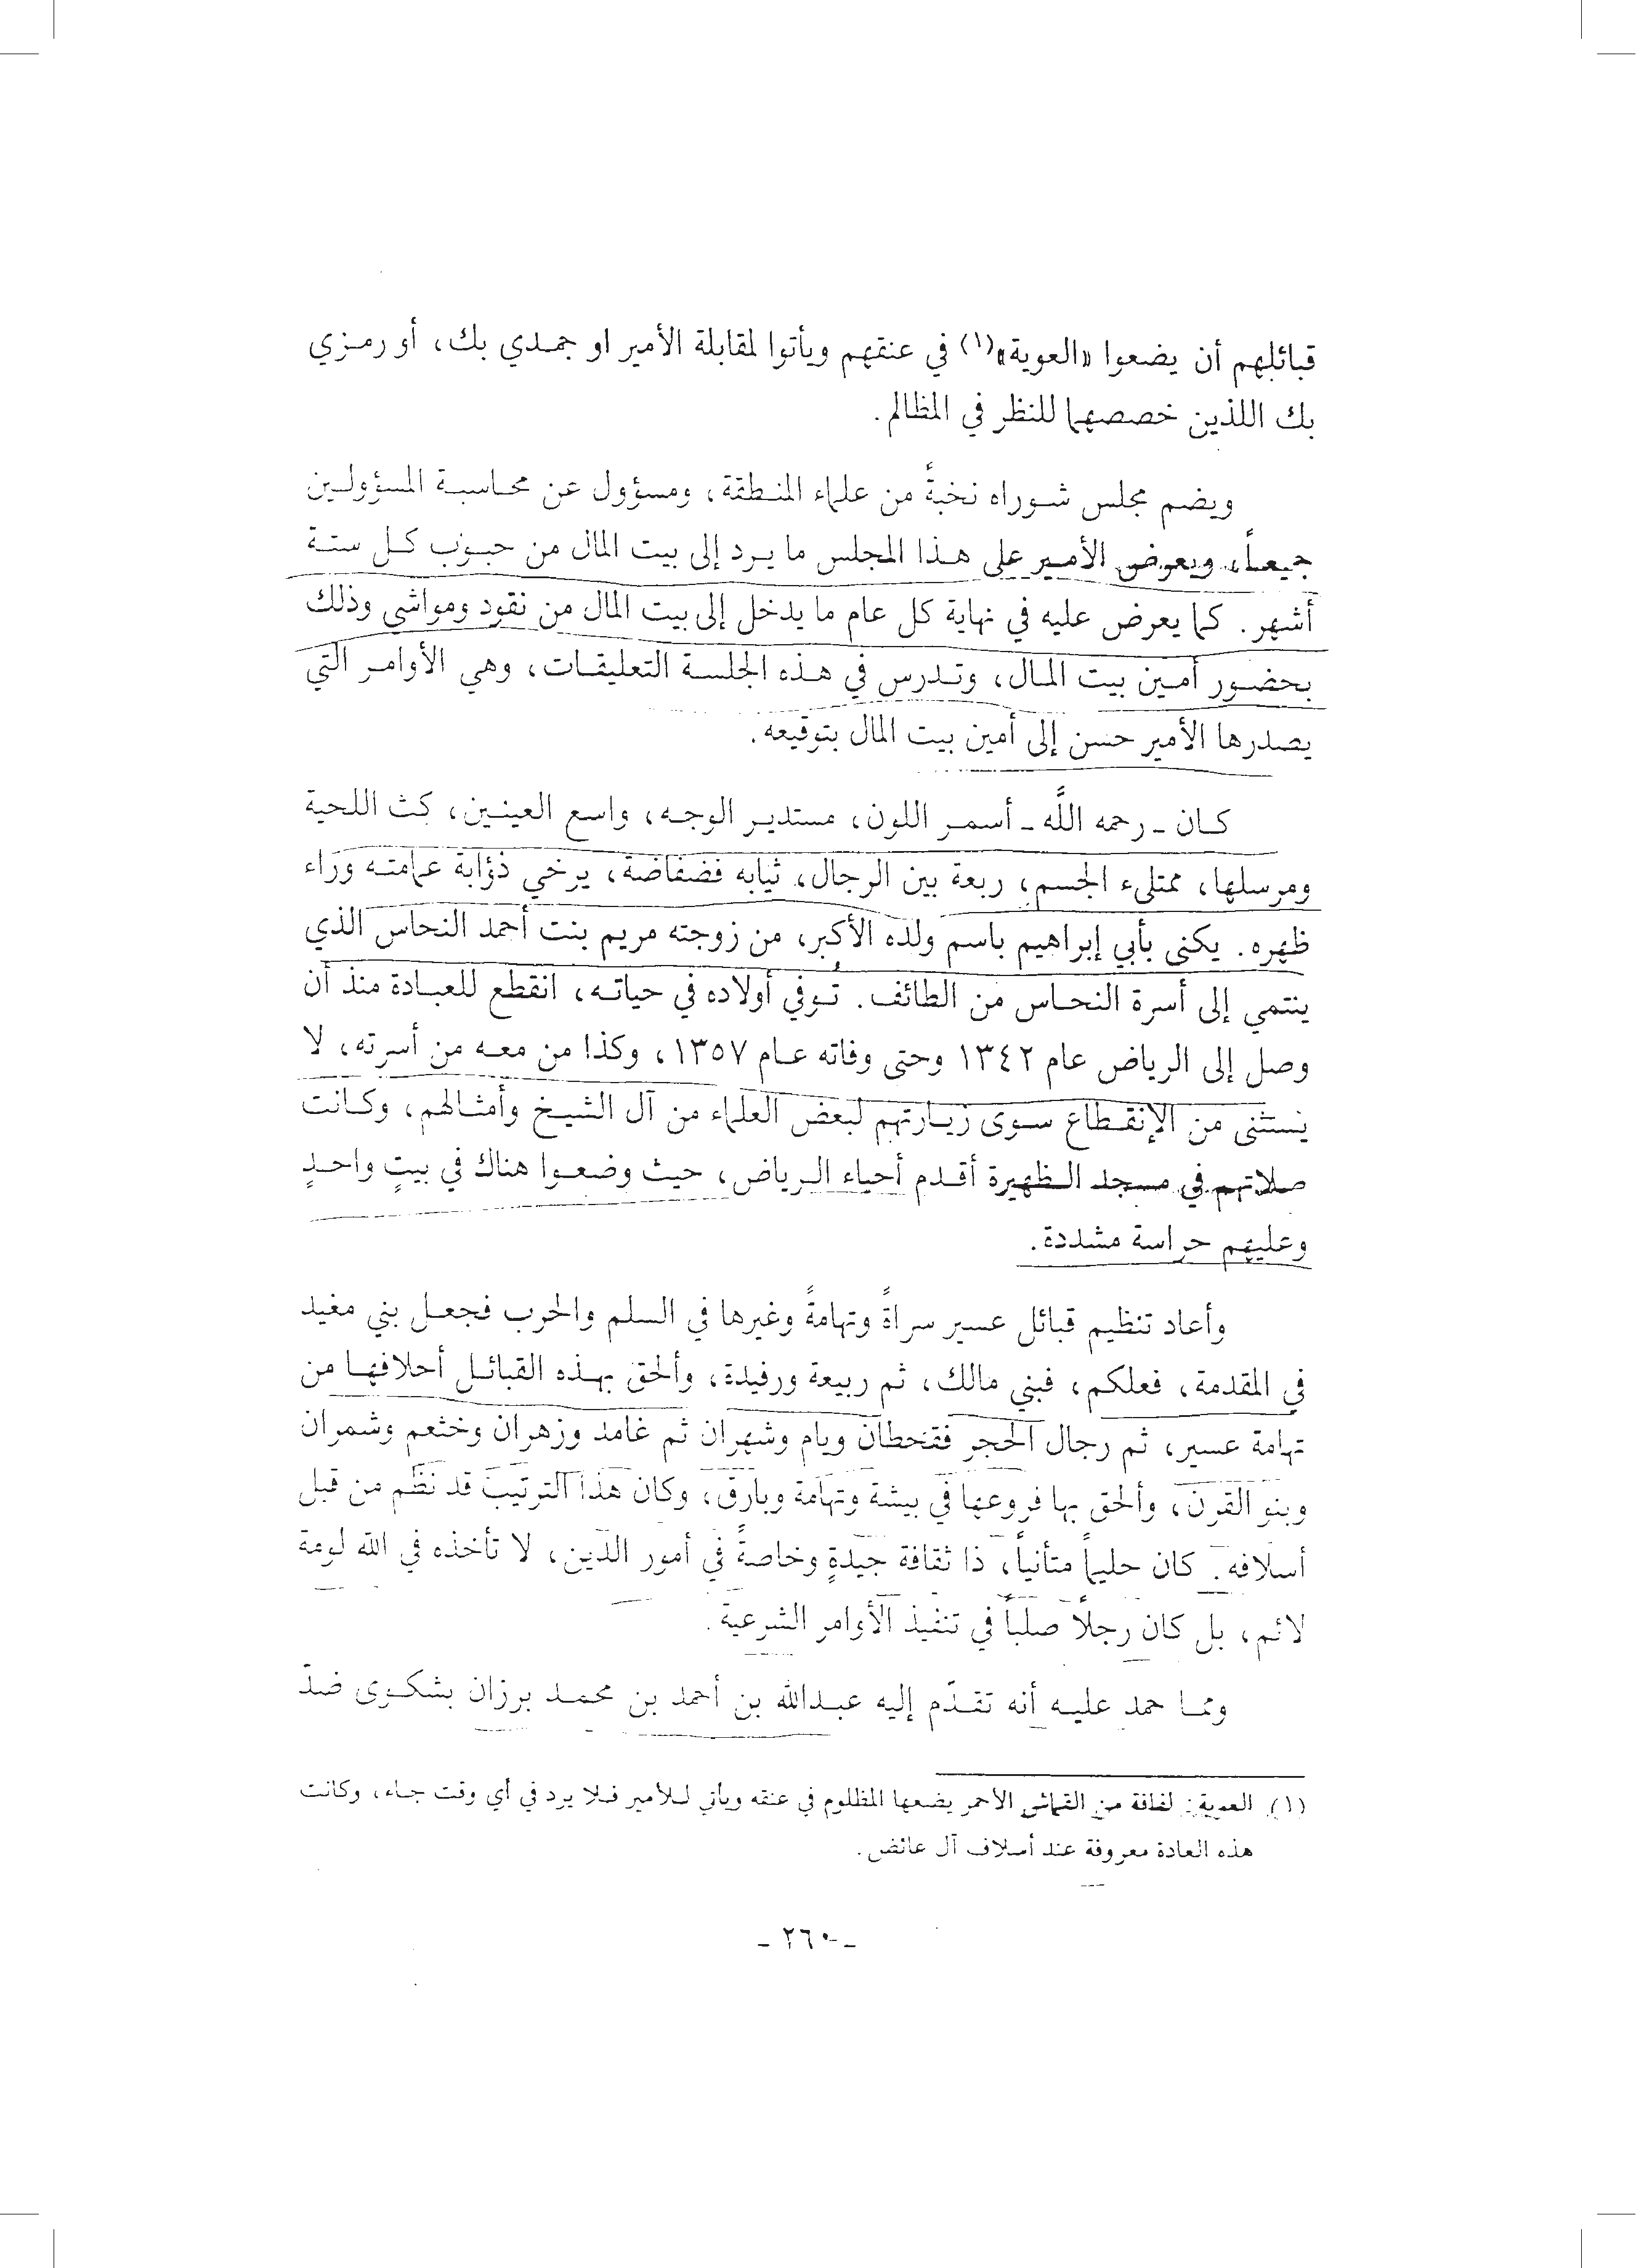 قبائلهم أن يضعوا «العوية»(١) في عنقهم ويأتوا لمقابلة الأمير او حمدي بك، أو رمزي
بك اللذين خصصهما للنظر في المظالم.
ويضم مجلس شوراه نخبةً من علماء المنطقة، ومسؤول عن محاسبة المسؤولين
جميعاً، ويعرض الأمير على هذا المجلس ما يرد إلى بيت المال من حبوب كل ستة
أشهر. كما يعرض عليه في نهاية كل عام ما يدخل إلى بيت المال من نقود ومواشي وذلك
بحضور أمين بيت المال، وتدرس في هذه الجلسة التعليقات، وهي الأوامر التي
يصدرها الأمير حسن إلى أمين بيت المال بتوقيعه.
كان - رحمه اللَّه - أسمر اللون، مستدير الوجه، واسع العينين، كث اللحية
ومرسلها، ممتلىء الجسم، ربعة بين الرجال، ثيابه فضفاضة، يرخي ذؤابة عمامته وراء
ظهره. يكنى بأبي إبراهيم باسم ولده الأكبر، من زوجته مريم بنت أحمد النحاس الذي
ينتمي إلى أسرة النحاس من الطائف. تُوفي أولاده في حياته، انقطع للعبادة منذ أن
وصل إلى الرياض عام ١٣٤٢ وحتى وفاته عام ١٣٥٧، وكذا من معه من أسرته، لا
يستثنى من الإنقطاع سوى زيارتهم لبعض العلماء من آل الشيخ وأمثالهم، وكانت
صلاتهم في مسجد الظهيرة أقدم أحياء الرياض، حيث وضعوا هناك في بيتٍ واحدٍ
وعليهم حراسة مشددة.
وأعاد تنظيم قبائل عسير سراةً وتهامةً وغيرها في السلم والحرب فجعل بني مغيد
في المقدمة، فعلكم، فبني مالك، ثم ربيعة ورفيدة، وألحق بهذه القبائل أحلافها من
تهامة عسير، ثم رجال الحجر فقحطان ويام وشهران ثم غامد وزهران وخثعم وشمران
وبنو القرن، وألحق بها فروعها في بيشة وتهامة وبارق، وكان هذا الترتيب قد نظّم من قبل
أسلافه. كان حليماً متأنياً، ذا ثقافة جيدةٍ وخاصةً في أمور الدين، لا تأخذه في الله لومة
لائم، بل كان رجلاً صلباً في تنفيذ الأوامر الشرعية.
ومما حمد عليه أنه تقدّم إليه عبدالله بن أحمد بن محمد برزان بشكوى ضدّ
(١) العوية: لفافة من القماش الأحمر يضعها المظلوم في عنقه ويأتي للأمير فلا يرد في أي وقت جاء، وكانت
هذه العادة معروفة عند أسلاف آل عائض.
- ٢٦٠ -